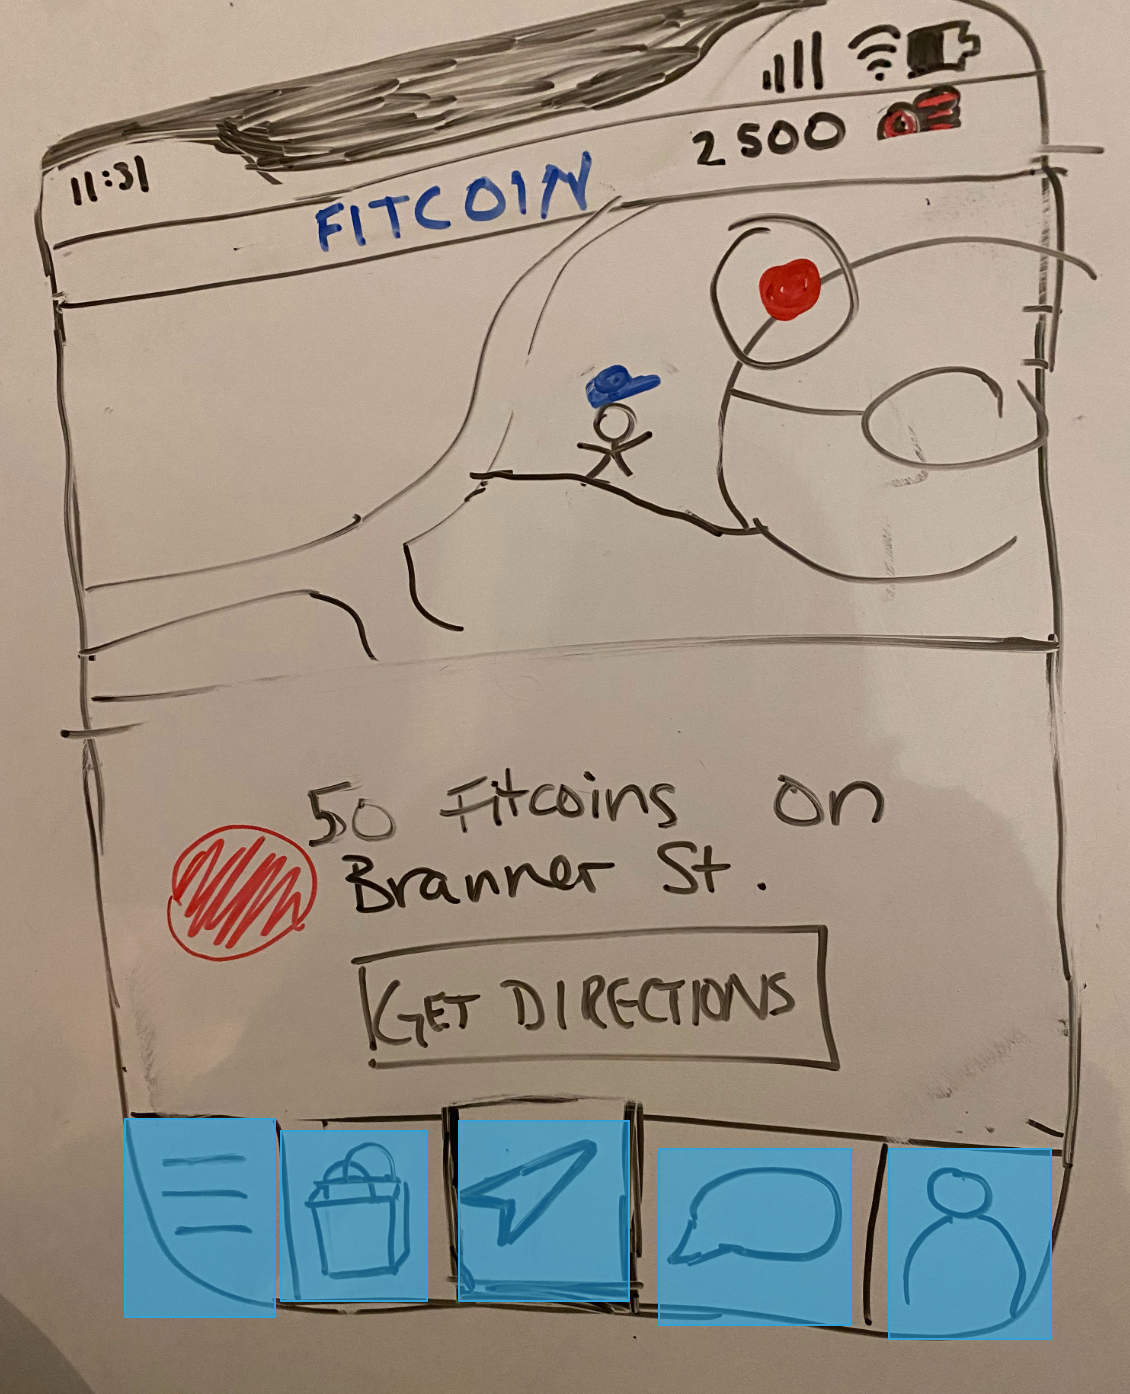 11:31
FITCOIN
2500
50 Fitcoins on
Branner St.
GET DIRECTIONS